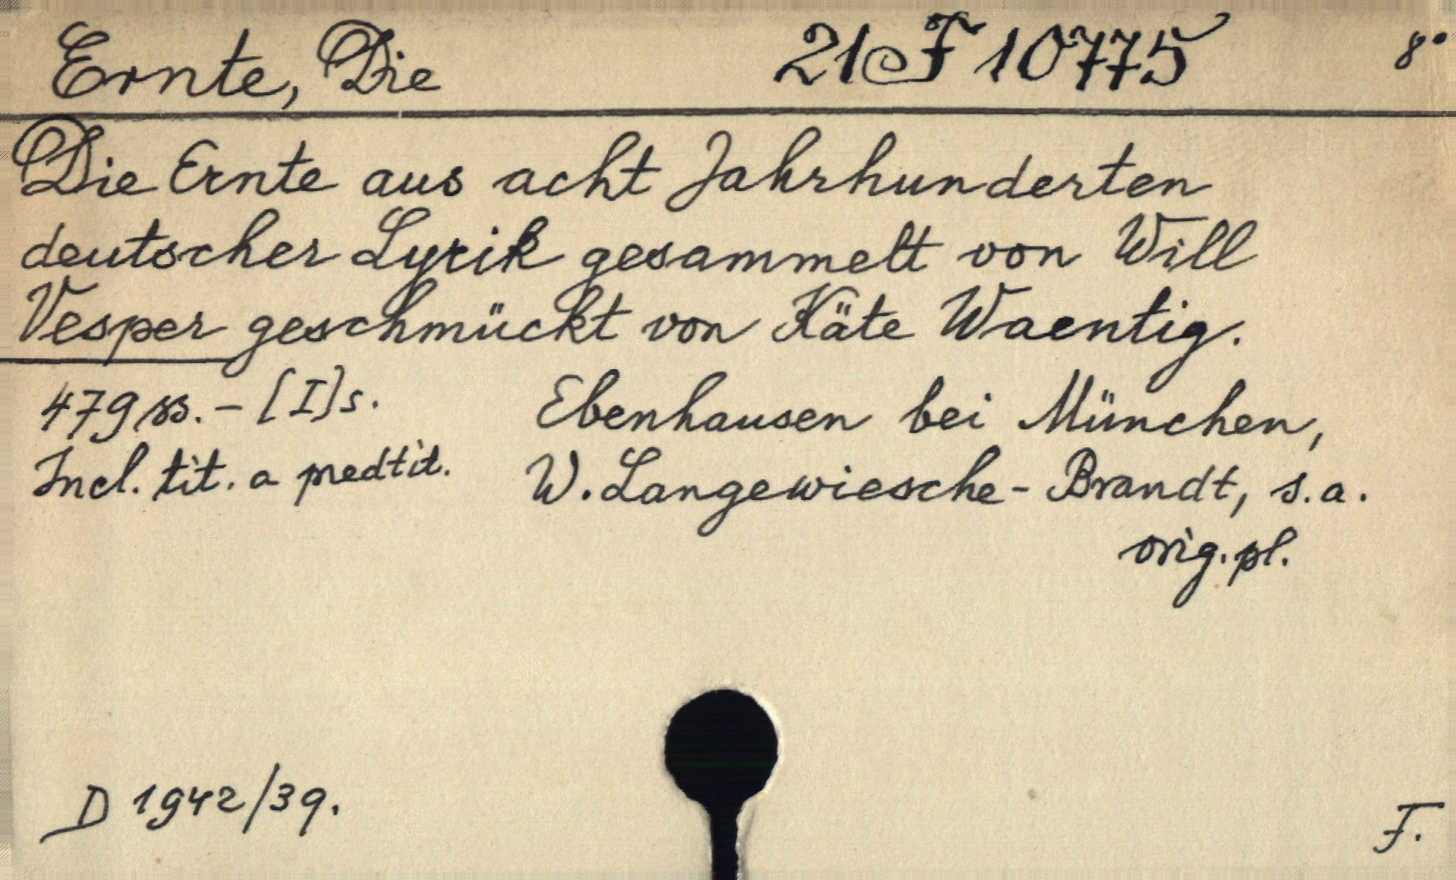 Ernte, Die 21 F 10775 8°
Die Ernte aus acht Jahrhunderten
deutscher Lyrik gesammelt von Will
Vesper geschmückt von Käte Waentig.
479 ss. - [I] s. Ebenhausen bei München,
Incl. tit. a predtit. W. Langewiesche - Brandt, s. a.
orig. pl.
D 1942/39. F.